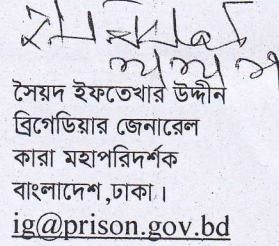 সৈয়দ ইফতেখার উদ্দীন
ব্রিগেডিয়ার জেনারেল
কারা মহাপরিদর্শক
বাংলাদেশ,ঢাকা।
ig@prison.gov.bd